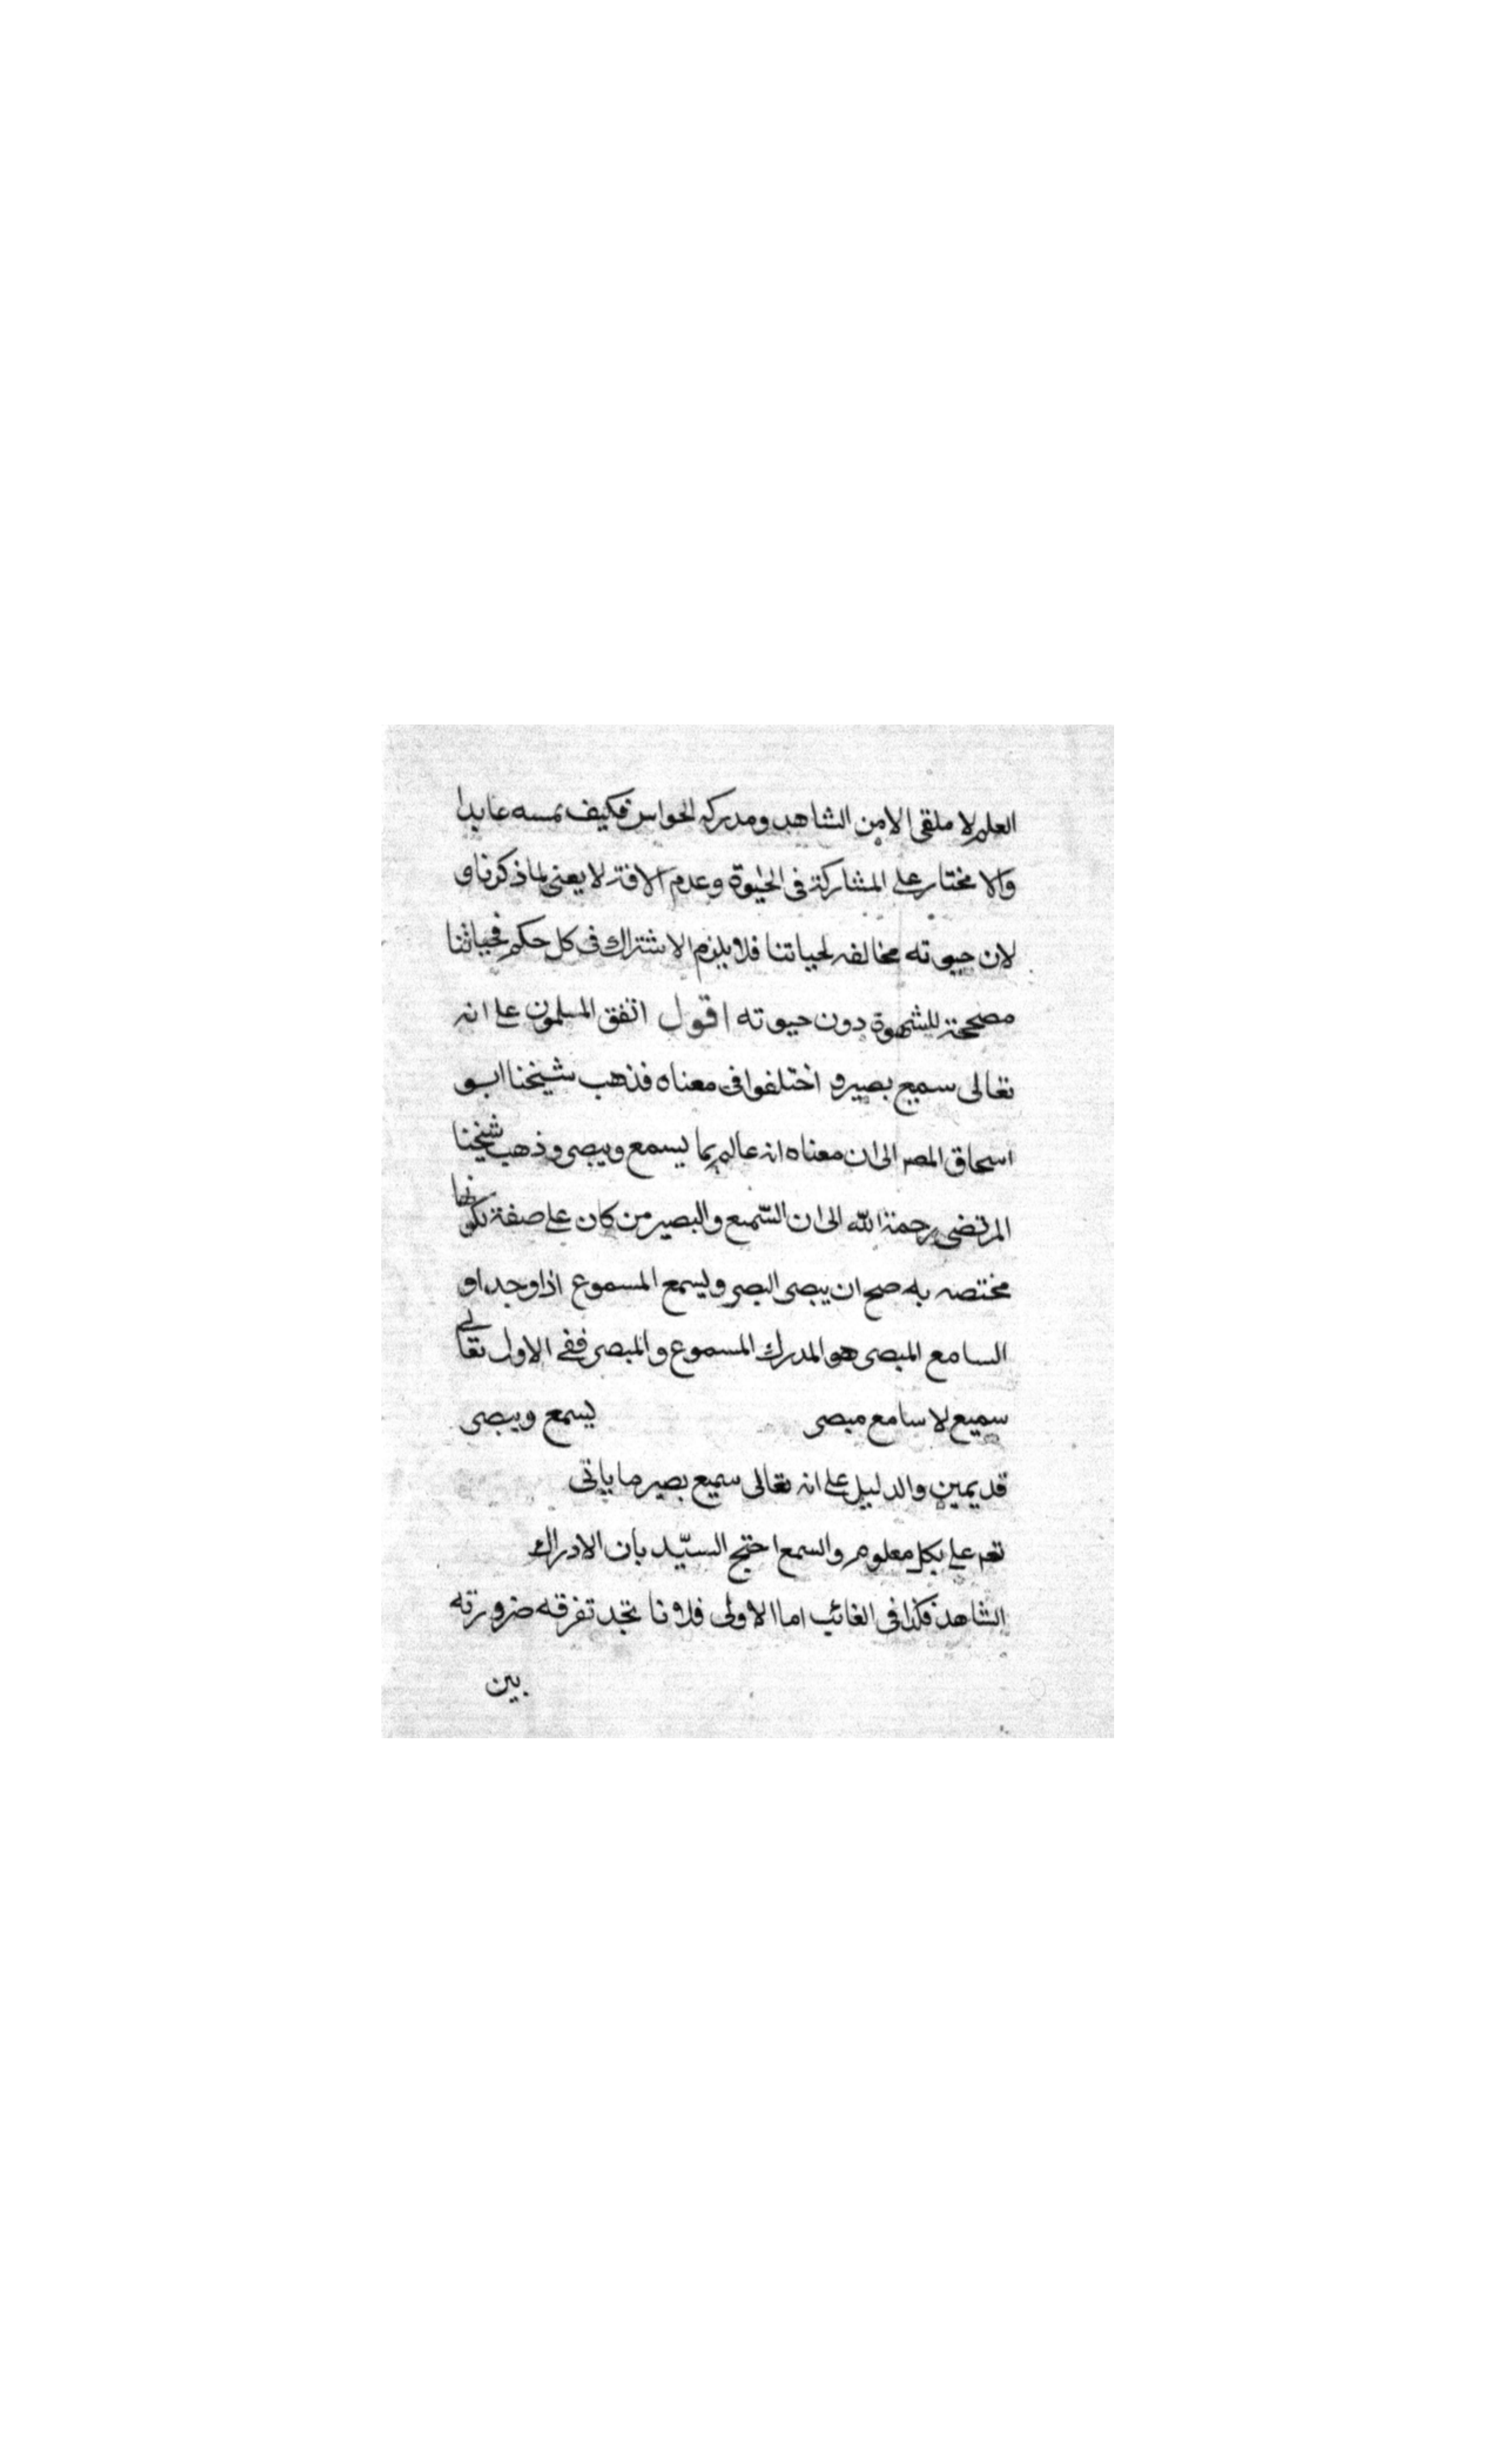 العلم لا ملقى الا من الشاهد ومدركه الحواس فكيف نمسه عابدا
والا مختار على المشاركة فى الحيوة وعدم الافة لا يعنى لما ذكرناو
لان حيوته مخالفه لحياتنا فلا يلزم الاشتراك فى كل حكم فحياتنا
مصححة للشهوة دون حيوته اقول اتفق المسلمون على انه
تعالى سميع بصير و اختلفوا فى معناه فذهب شيخنا ابو
اسحاق المصر الى ان معناه انه عالم بما يسمع ويبصى وذهب شيخنا
المرتضى رحمة الله الى ان السّميع والبصير من كان على صفة بكونها
مختصه به صح ان يبصى البصر ويسمع المسموع اذا وجد او
السامع المبصى هو المدرك المسموع والمبصى ففى الاول تعالى
سميع لا سامع مبصى يسمع ويبصى
قديمين والدليل على انه تعالى سميع بصير ما ياتى
على بكل معلوم والسمع احتج السيّد بان الادراك
الشاهد فكذا فى الغائب اما الاولى فلانا نجد تفرقه ضرورته
بين